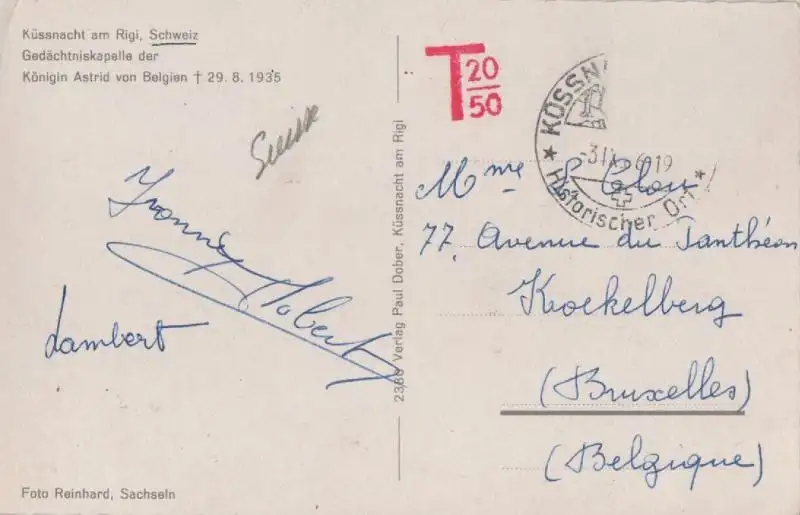 Küssnacht am Rigi, Schweiz
Gedächtniskapelle der
Königin Astrid von Belgien † 29. 8. 1935
Suisse
Yvonne Hobert
Lambert
Foto Reinhard, Sachseln
2386 Verlag Paul Dober, Küssnacht am Rigi
T 20
50
* KÜSSN
19
Historischer Ort *
Mme S
77, Avenue du Panthéon
Koekelberg
(Bruxelles)
(Belgique)